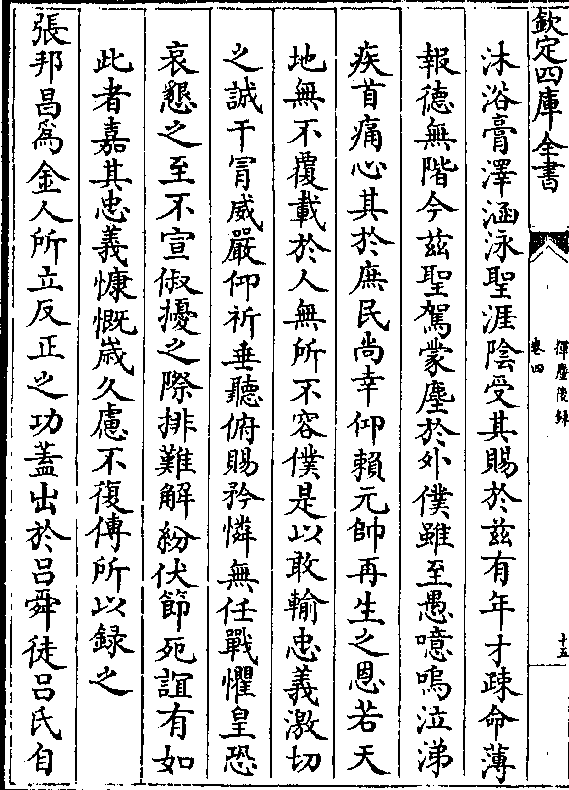 欽定四庫全書
揮麈後錄
卷四
十五
沐浴膏澤涵泳聖涯陰受其賜於兹有年才疎命薄
報德無階今兹聖駕蒙塵於外僕雖至愚噫嗚泣涕
疾首痛心其於庶民尚幸仰賴元帥再生之恩若天
地無不覆載於人無所不容僕是以敢輸忠義激切
之誠干冐威嚴仰祈垂聽俯賜矜憐無任戰懼皇恐
哀懇之至不宣俶擾之際排難解紛伏節死誼有如
此者嘉其忠義慷慨歲久慮不復傳所以録之
張邦昌爲金人所立反正之功蓋出於吕舜徒吕氏自